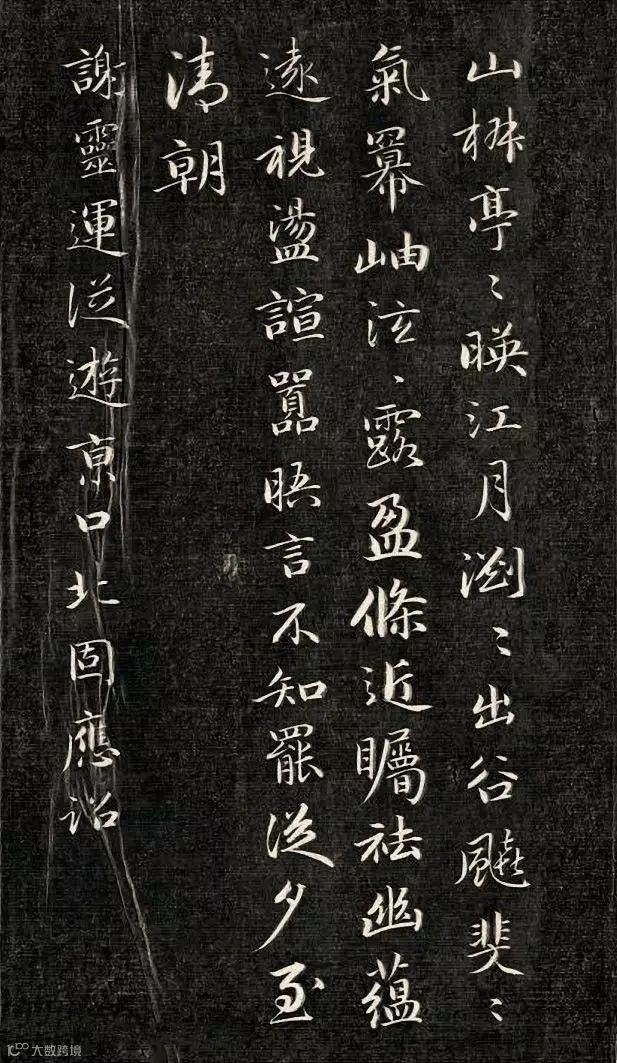 山椒亭〻暎江月瀏〻出谷飈斐〻
氣冪岫泫〻露盈條近矚祛幽蘊
遠視盪諠囂晤言不知罷從夕至
清朝
謝靈運從遊京口北固應詔
大数跨境